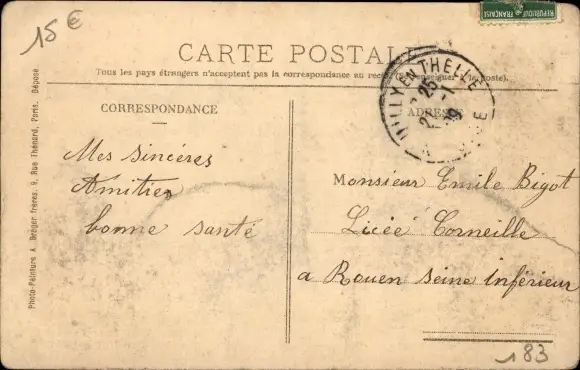 15 €
REPUBLIQUE FRANÇAISE
CARTE POSTALE
Tous les pays étrangers n'acceptent pas la correspondance au recto (Se renseigner à la poste).
CORRESPONDANCE
ADRESSE
NILLY EN THELLE
25 -1
Mes sincéres
Amitiés
bonne santé
Monsieur Emile Bigot
Licée Corneille
a Rouen Seine Inférieur
Photo-Peinture A. Breger frères, 9, Rue Thénard, Paris. Déposé
183